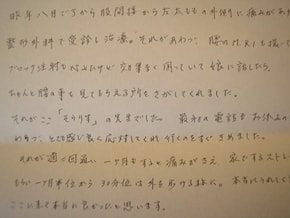 昨年八月ごろから股関節から太ももの外側に痛みがあり
整形外科で受診し治療。それがおわって 腰のM.R.Iも撮って
ブロック注射も 効果なく困っていて娘に話したら、
ちゃんと体の事を見てもらえる所をさがしてくれました。
それがここ「そらうま」の先生でした。 最初の電話を
とても感じ良く応対してくれ行くのをすぐきめました。
それが週で回通い一ヶ月もすると痛みがきえ、家でするスト
一ヶ月半位から30分位は外を歩ける様に。本当にうれしく
ここに来て本当に良かったと思います。